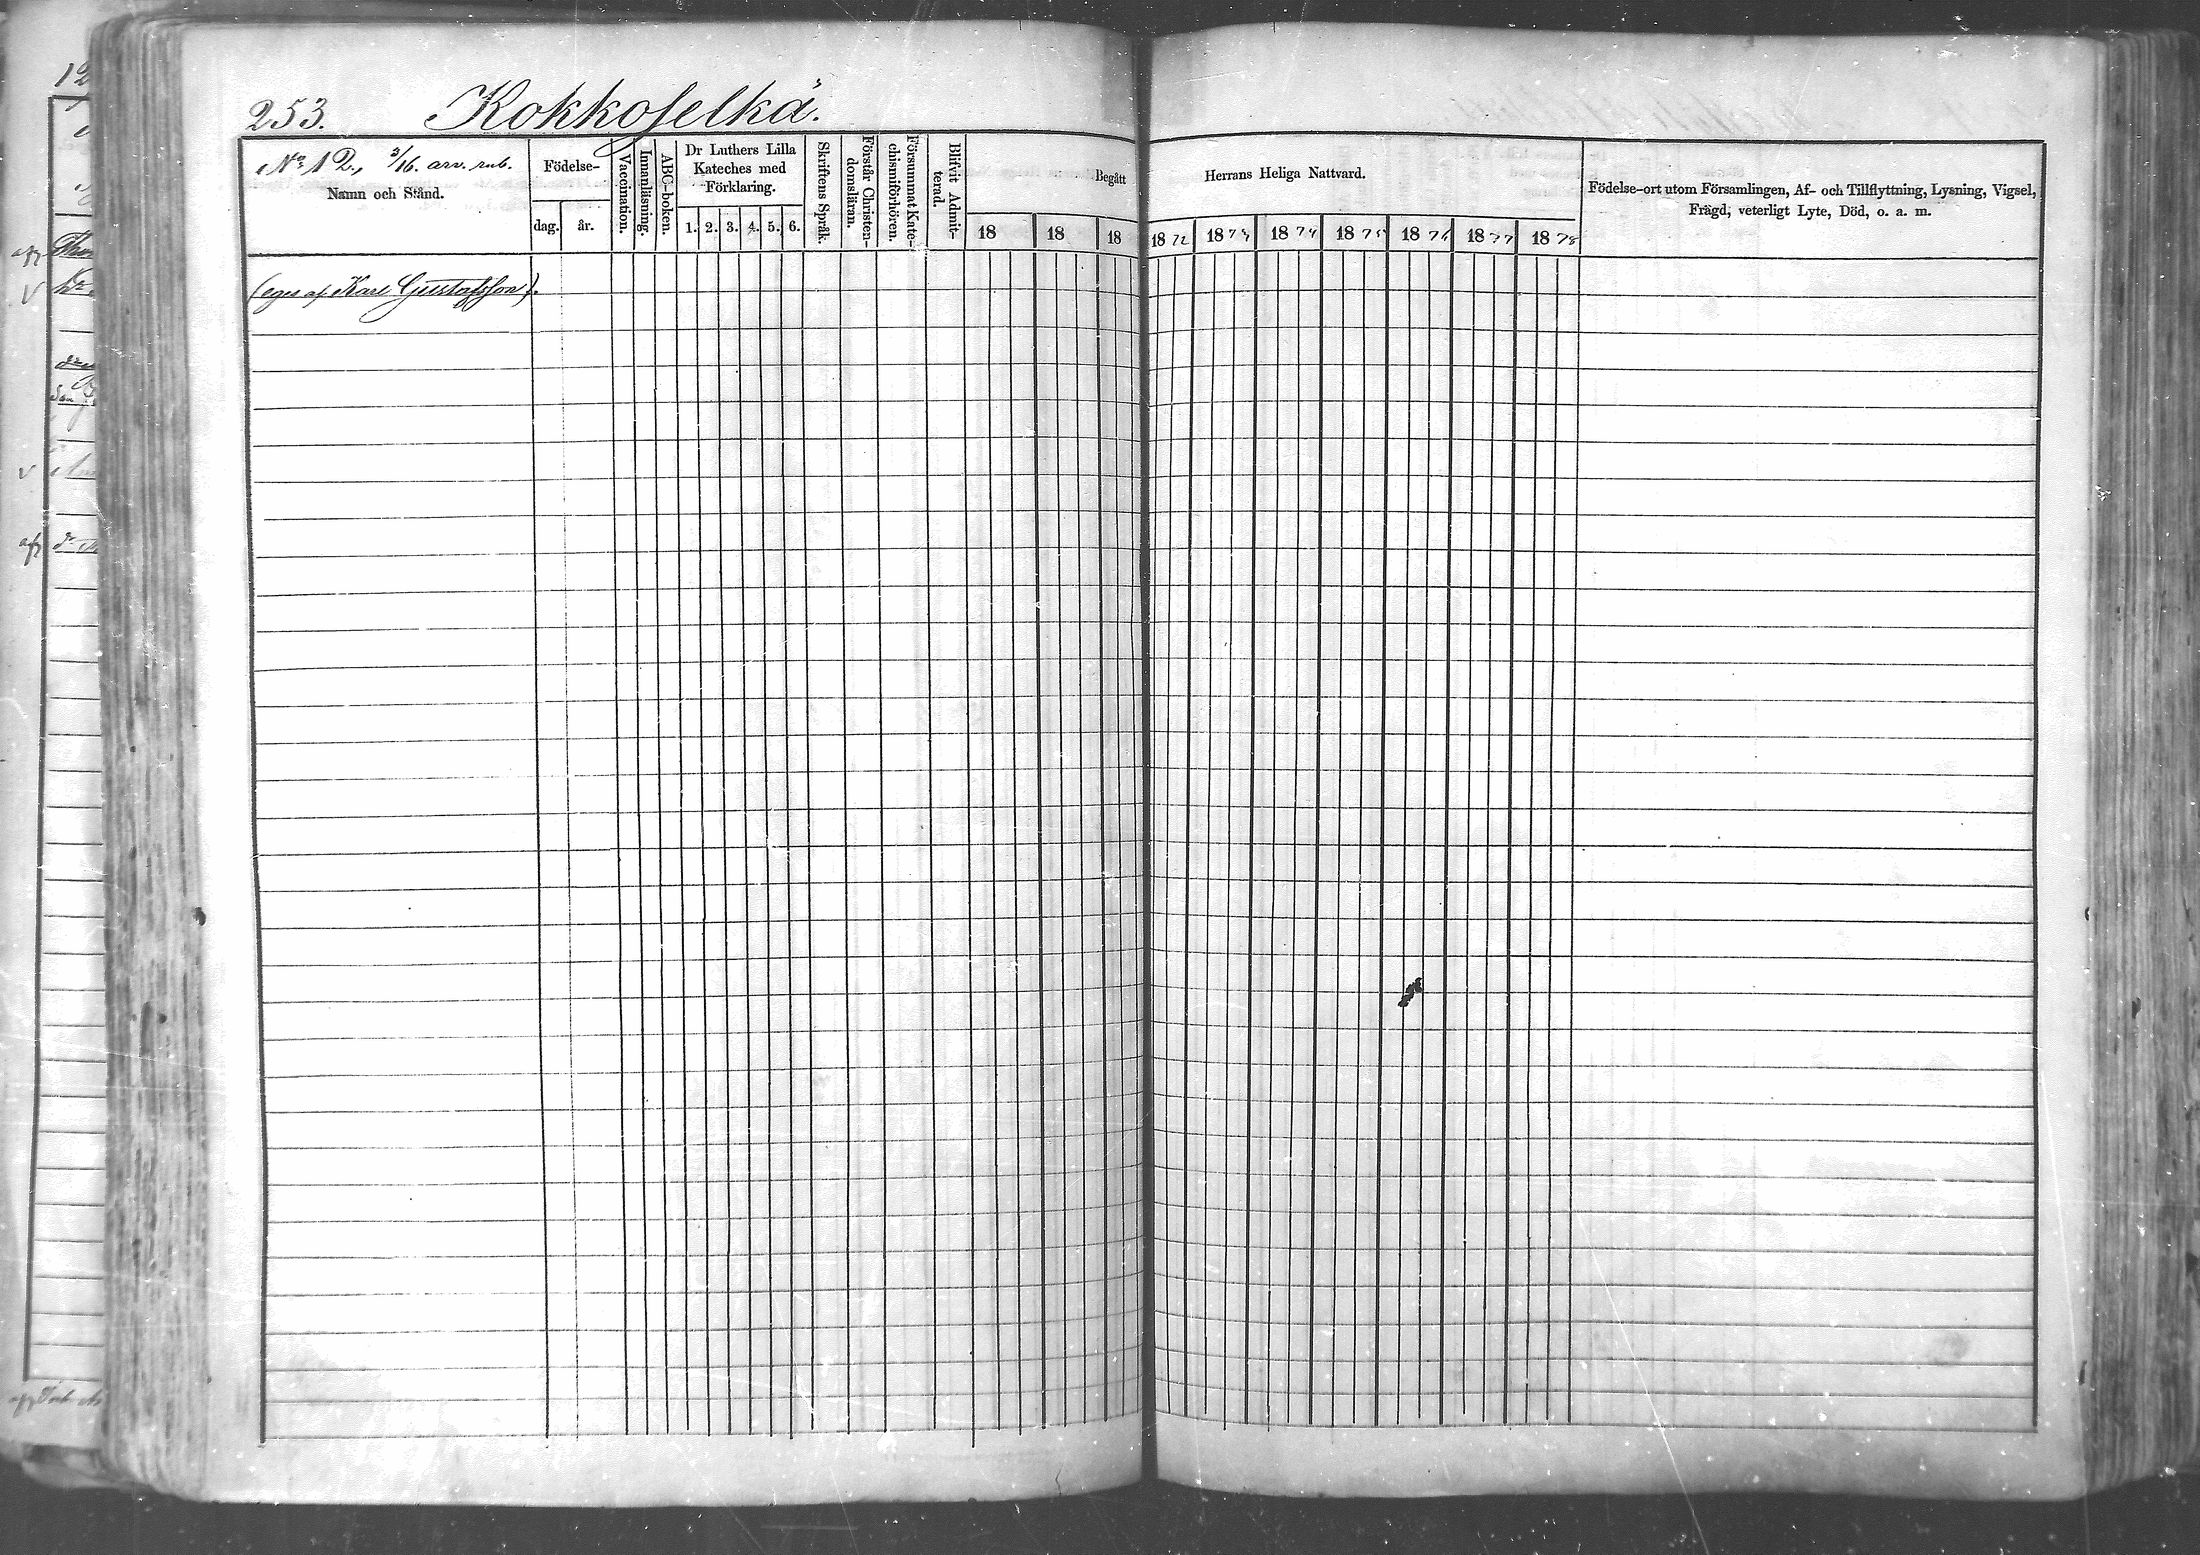 253. Kokkoselkä.
No 12, 3/16. arv. rub.
Namn och Stånd.
Födelse-
dag. år.
Vaccination.
Innanläsning.
ABC-boken.
Dr Luthers Lilla
Kateches med
Förklaring.
1. 2. 3. 4. 5. 6.
Skriftens Språk.
Förstår Christen-
domsläran.
Försummat Kate-
chismiförhören.
Blifvit Admit-
terad
Begått Herrans Heliga Nattvard.
18 18 18 1872 1873 1874 1875 1876 1877 1878
Födelse-ort utom Församlingen, Af- och Tillflyttning, Lysning, Vigsel,
Frägd, veterligt Lyte, Död, o. a. m.
(eges af Karl Gustafsson).